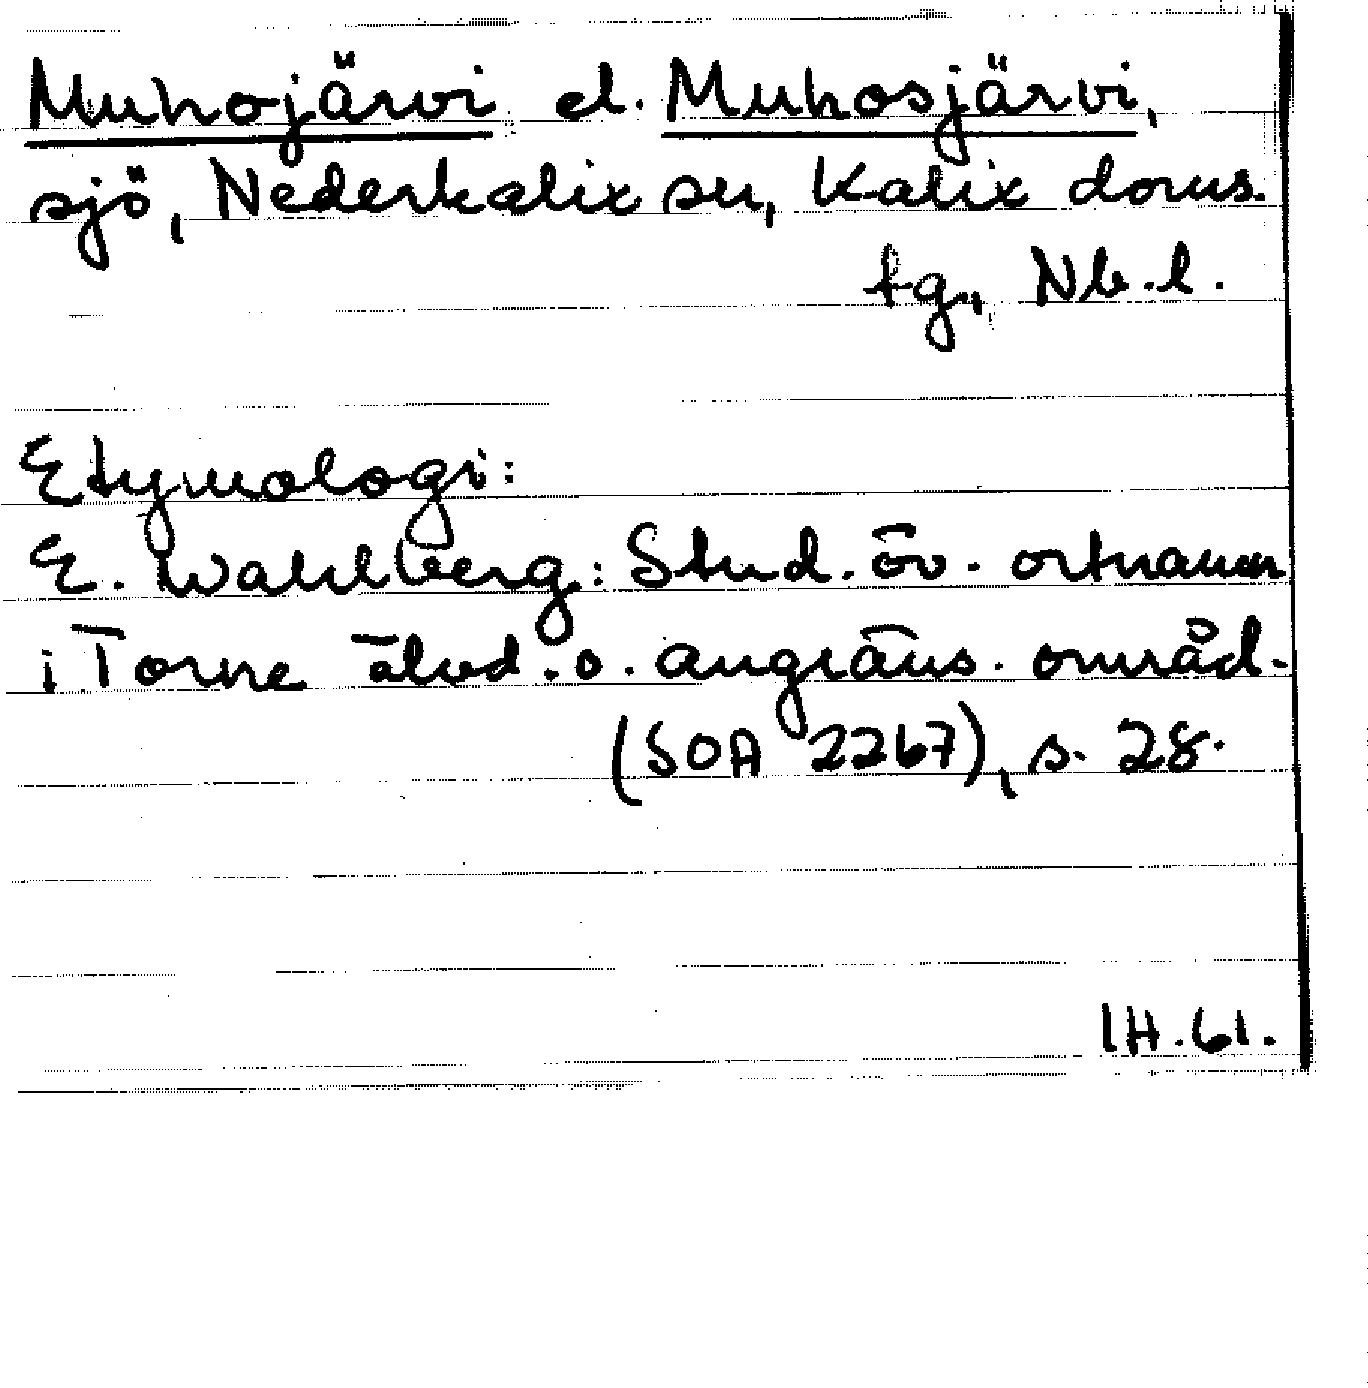 Muhojärvi el. Muhosjärvi,
sjö, Nederkalix sn, Kalix doms.
tg., Nb.l.
Etymologi:
E. Wahlberg: Stud. öv. ortnamn
i Torne älvd. o. angräns. områd.
(SOA 2267), s. 28.
IH.61.